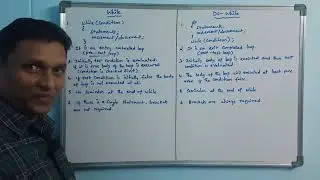 While
while(condition)
{
Statements;
increment/decrement;
}
1. It is an entry controlled loop
(pre-test loop)
2. Initially test condition is evaluated
if it is true body of the loop is executed
(condition is checked first)
3. If test condition is initially false the body of
loop is not executed at all.
5. No semicolon at the end of while
6. If there is a single statement, brackets
are not required.
Do-While
do
{
Statements;
increment/decrement;
}
while(condition);
1. It is an exit controlled loop.
(post-test condition)
2. Initially body of loop is executed and then test
condition is evaluated
4. The body of the loop will executed at least once
even if the condition false.
5. Semicolon at the end of while
6. Brackets are always required.